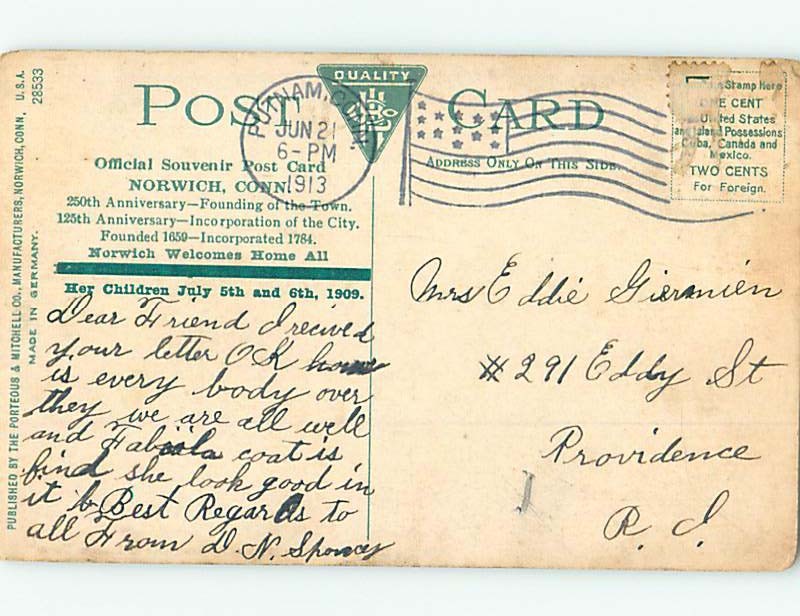 U.S.A.
28533
PUBLISHED BY THE PORTEOUS & MITCHELL CO., MANUFACTURERS, NORWICH, CONN.
MADE IN GERMANY.
POST CARD
QUALITY
PUTNAM, CONN.
JUN 21
6-PM
1913
Official Souvenir Post Card
NORWICH, CONN.
250th Anniversary—Founding of the Town.
125th Anniversary—Incorporation of the City.
Founded 1659—Incorporated 1784.
Norwich Welcomes Home All
Her Children July 5th and 6th, 1909.
ADDRESS ONLY ON THIS SIDE.
Stamp Here
ONE CENT
United States
and Island Possessions
Cuba, Canada and
Mexico.
TWO CENTS
For Foreign.
Dear Friend I recived
your letter OK how
is every body over
they we are all well
and Fabiola coat is
find she look good in
it Best Regards to
all From D. N.
Mrs Eddie
#291 Eddy St
Providence
R. I.